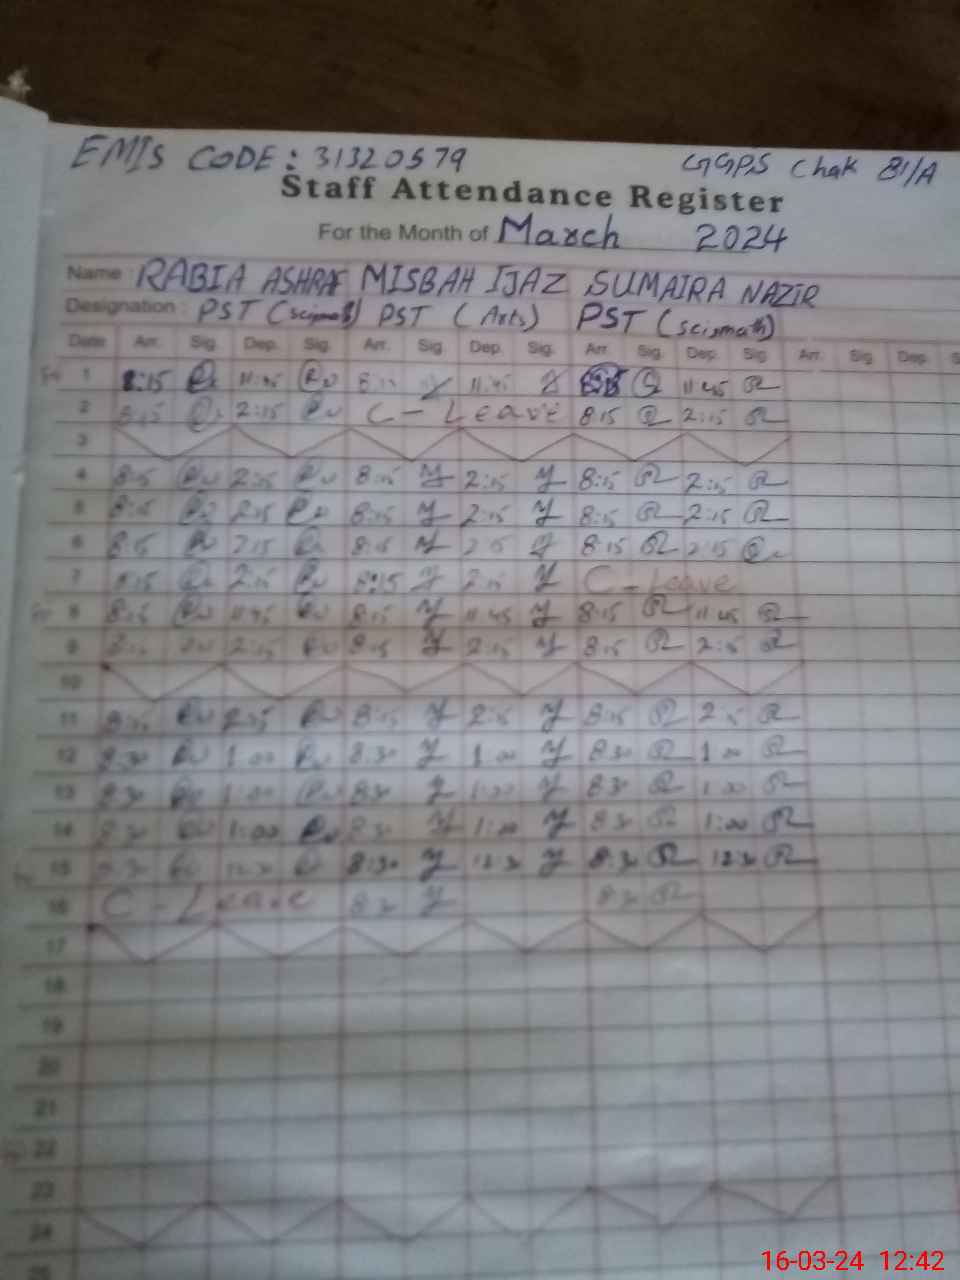 EMIS CODE: 31320579 GGPS Chak 81/A
Staff Attendance Register
For the Month of March 2024
Name: RABIA ASHRAF MISBAH IJAZ SUMAIRA NAZIR
Designation: PST (sci math) PST (Arts) PST (sci math)
Date Arr. Sig. Dep. Sig. Arr. Sig. Dep. Sig. Arr. Sig. Dep. Sig. Arr. Sig. Dep.
1 8:15 11:45 8:15 11:45 8:15 11:45
2 8:15 2:15 C-Leave 8:15 2:15
3
4 8:15 2:15 8:15 2:15 8:15 2:15
5 8:15 2:15 8:15 2:15 8:15 2:15
6 8:15 2:15 8:15 2:15 8:15 2:15
7 8:15 2:15 8:15 2:15 C-Leave
8 8:15 11:45 8:15 11:45 8:15 11:45
9 8:15 2:15 8:15 2:15 8:15 2:15
10
11 8:15 2:15 8:15 2:15 8:15 2:15
12 8:30 1:00 8:30 1:00 8:30 1:00
13 8:30 1:00 8:30 1:00 8:30 1:00
14 8:30 1:00 8:30 1:00 8:30 1:00
15 8:30 12:30 8:30 12:30 8:30 12:30
16 C-Leave 8:30 8:30
17
18
19
20
21
22
23
24
25
16-03-24 12:42